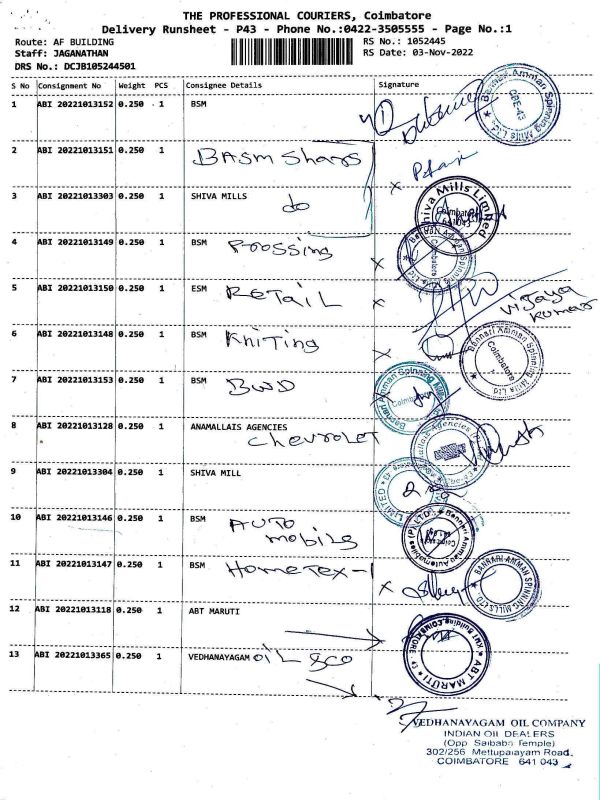 THE PROFESSIONAL COURIERS, Coimbatore
Delivery Runsheet - P43 - Phone No.:0422-3505555 - Page No.:1
Route: AF BUILDING
RS No.: 1052445
Staff: JAGANATHAN
RS Date: 03-Nov-2022
DRS No.: DCJB105244501
S No Consignment No Weight PCS Consignee Details Signature
1 ABI 20221013152 0.250 1 BSM
2 ABI 20221013151 0.250 1 BASM Shars
3 ABI 20221013303 0.250 1 SHIVA MILLS do
4 ABI 20221013149 0.250 1 BSM Proossing
5 ABI 20221013150 0.250 1 ESM RETAIL
vijaya kumar
6 ABI 20221013148 0.250 1 BSM Kniting
7 ABI 20221013153 0.250 1 BSM BWD
8 ABI 20221013128 0.250 1 ANAMALLAIS AGENCIES
chevrolet
9 ABI 20221013304 0.250 1 SHIVA MILL
10 ABI 20221013146 0.250 1 BSM AUTO
mobils
11 ABI 20221013147 0.250 1 BSM HomeTex-1
12 ABI 20221013118 0.250 1 ABT MARUTI
13 ABI 20221013365 0.250 1 VEDHANAYAGAM OIL &co
Bannari Amman Spinning Mills Ltd
CBE-43
Shiva Mills Limited
Coimbatore
641 043
Bannari Amman Spinning Mills Ltd
Coimbatore
BANNARI AMMAN SPINNING MILLS LTD.
ABT MARUTI
VEDHANAYAGAM OIL COMPANY
INDIAN OIL DEALERS
(Opp. Saibaba Temple)
302/256 Mettupalayam Road,
COIMBATORE 641 043